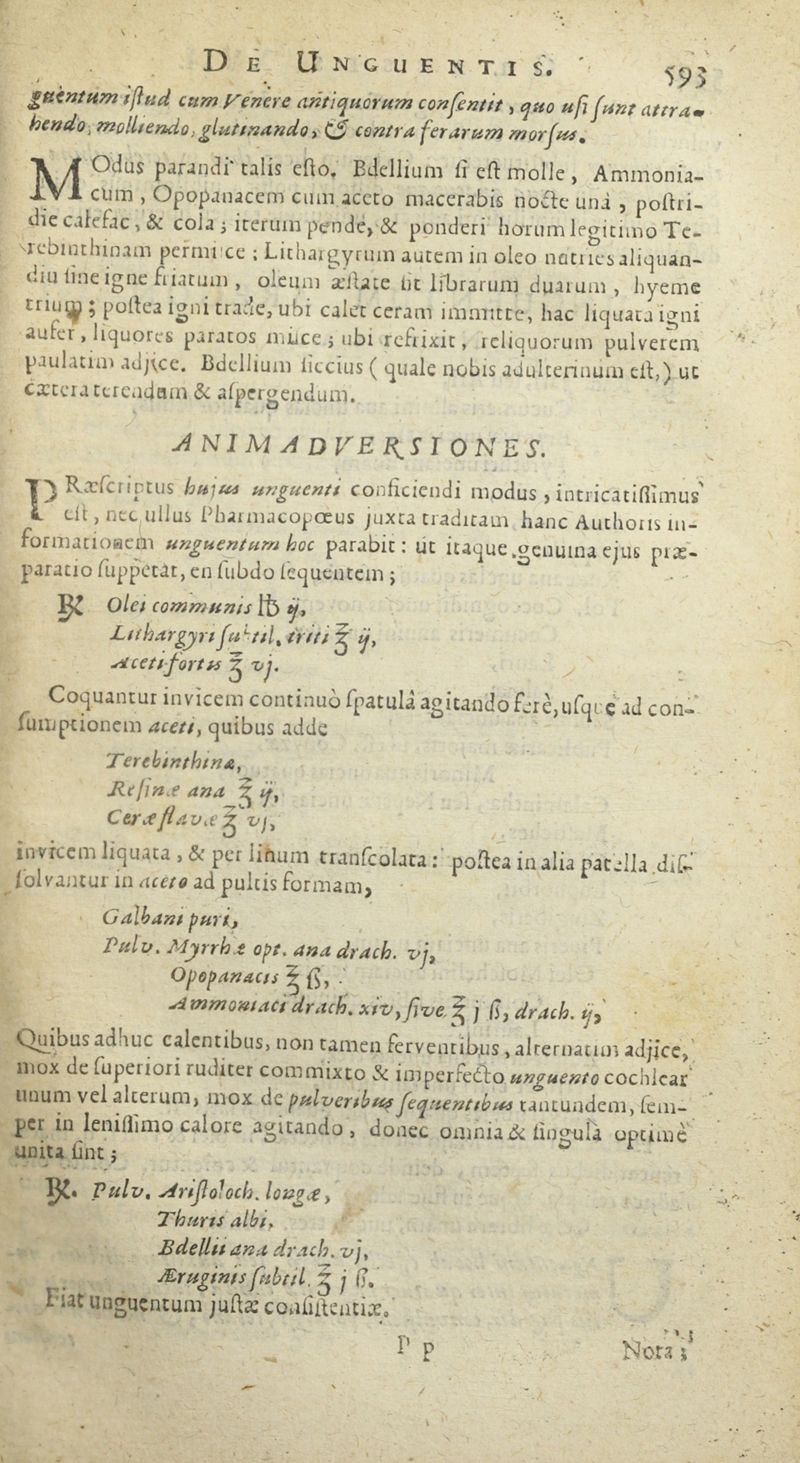 DE UNGUENTIS. 593
guentum iſtud cum Venere antiquorum conſentit, quo uſi ſunt attra-
hendo, molliendo, glutinando, & contra ferarum morſus.
MOdus parandi talis eſto. Bdellium ſi eſt molle, Ammonia-
cum, Opopanacem cum aceto macerabis nocte unâ, poſtri-
die calefac, & cola; iterum pende, & ponderi horum legitimo Te-
rebinthinam permisce; Lithargyrum autem in oleo nutries aliquan-
diu ſine igne friatum, oleum æſtate ſit librarum duarum, hyeme
trium; poſtea igni trade, ubi calet ceram immitte, hac liquata igni
aufer, liquores paratos miſce; ubi refrixit, reliquorum pulverem
paulatim adjice. Bdellium ſiccius (quale nobis adulterinum eſt,) ut
cætera terendum & aſpergendum.
ANIMADVERSIONES.
PRæſcriptus hujus unguenti conficiendi modus, intricatiſſimus
eſt, nec ullus Pharmacopœus juxta traditam hanc Authoris in-
formationem unguentum hoc parabit: ut itaque genuina ejus præ-
paratio ſuppetat, en ſubdo ſequentem;
℞ Olei communis ℔ ij,
Lithargyri ſubtil. triti ℥ ij,
Aceti fortis ℥ vj.
Coquantur invicem continuò ſpatulâ agitando ferè, uſque ad con-
ſumptionem aceti, quibus adde
Terebinthinæ,
Reſinæ ana ℥ ij,
Ceræ flavæ ℥ vj,
invicem liquata, & per linum tranſcolata: poſtea in alia patella diſ-
ſolvantur in aceto ad pultis formam,
Galbani puri,
Pulv. Myrrhæ opt. ana drach. vj,
Opopanacis ℥ ß,
Ammoniaci drach. xiv, ſive ℥ j ß, drach. ij,
Quibus adhuc calentibus, non tamen ferventibus, alternatim adjice,
mox de ſuperiori ruditer commixto & imperfecto unguento cochlear
unum vel alterum, mox de pulveribus ſequentibus tantundem, ſem-
per in leniſſimo calore agitando, donec omnia & ſingula optimè
unita ſint;
℞. Pulv. Ariſtoloch. longæ,
Thuris albi,
Bdellii ana drach. vj,
Æruginis ſubtil. ℥ j ß.
Fiat unguentum juſtæ conſiſtentiæ.
P p Nota;